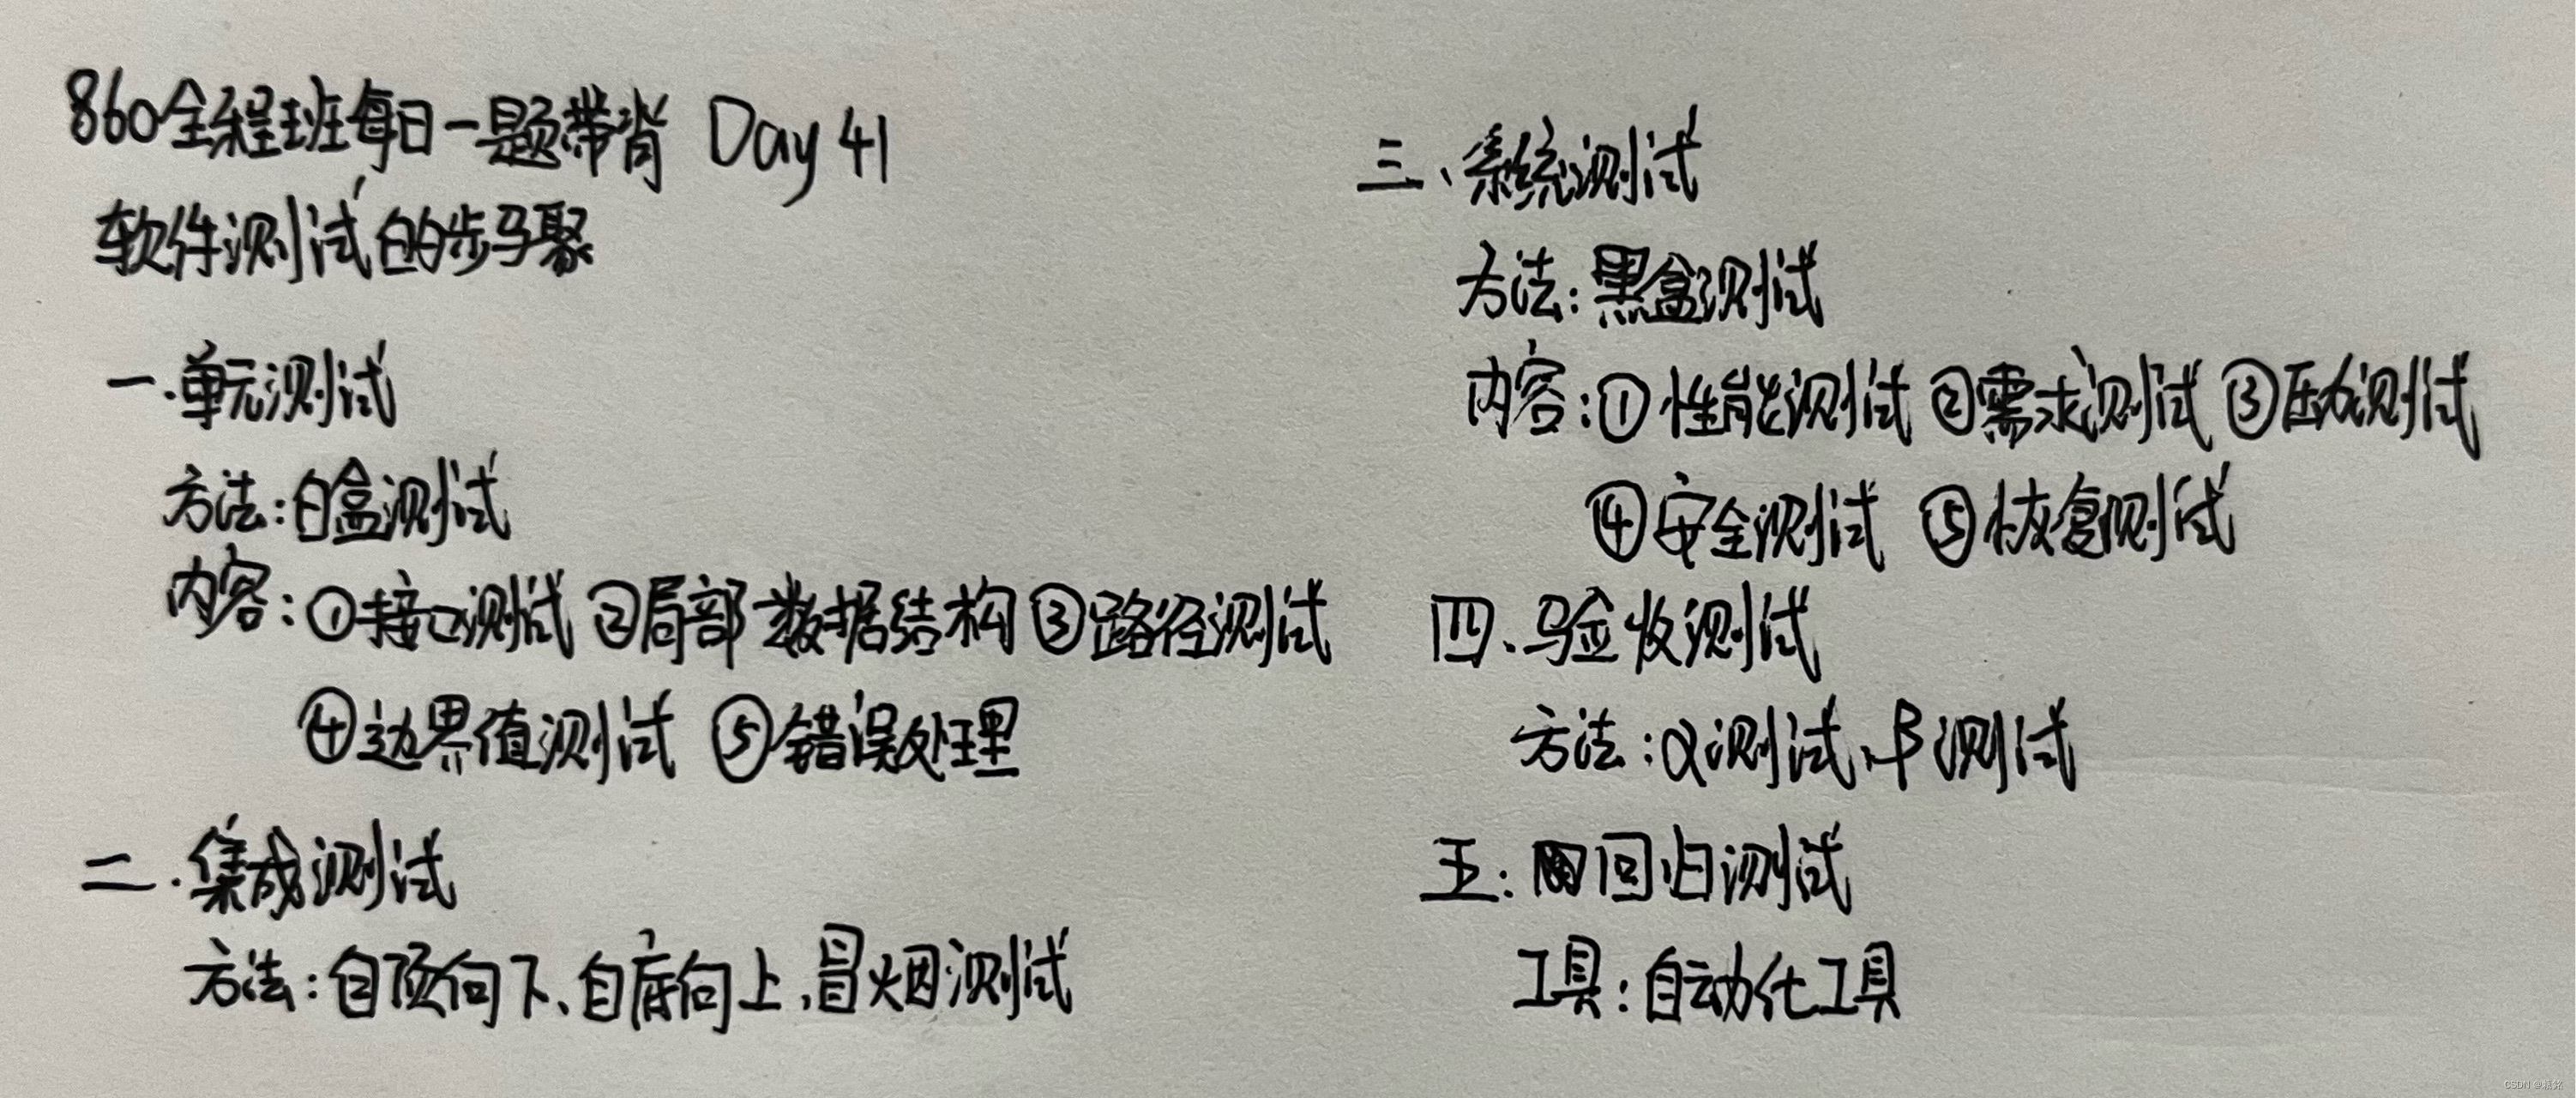 860全程班每日一题带背 Day 41
软件测试的步骤
一.单元测试
方法:白盒测试
内容:①接口测试 ②局部数据结构 ③路径测试
④边界值测试 ⑤错误处理
二.集成测试
方法:自顶向下、自底向上、冒烟测试
三、系统测试
方法:黑盒测试
内容:①性能测试 ②需求测试 ③压力测试
④安全测试 ⑤恢复测试
四、验收测试
方法:α测试、β测试
五:回归测试
工具:自动化工具